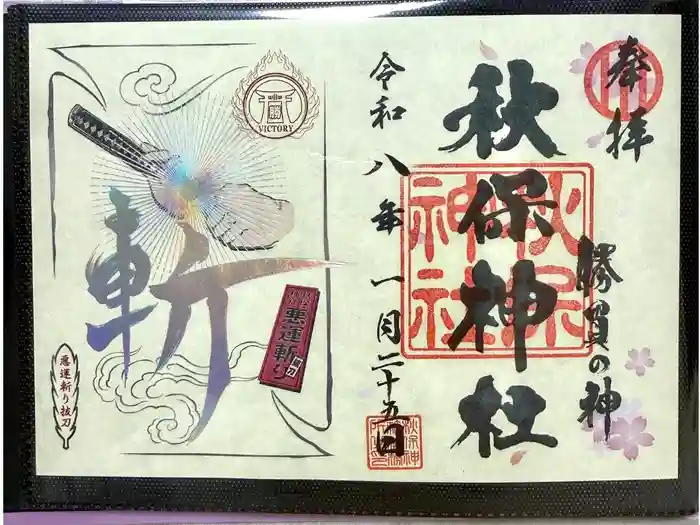 奉拝
勝負の神
秋保神社
秋保
神社
令和八年一月二十五日
勝
VICTORY
斬
悪運斬り
悪運斬り抜刀